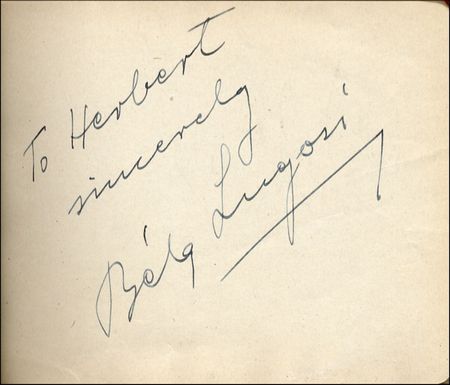 To Herbert
sincerely
Béla Lugosi